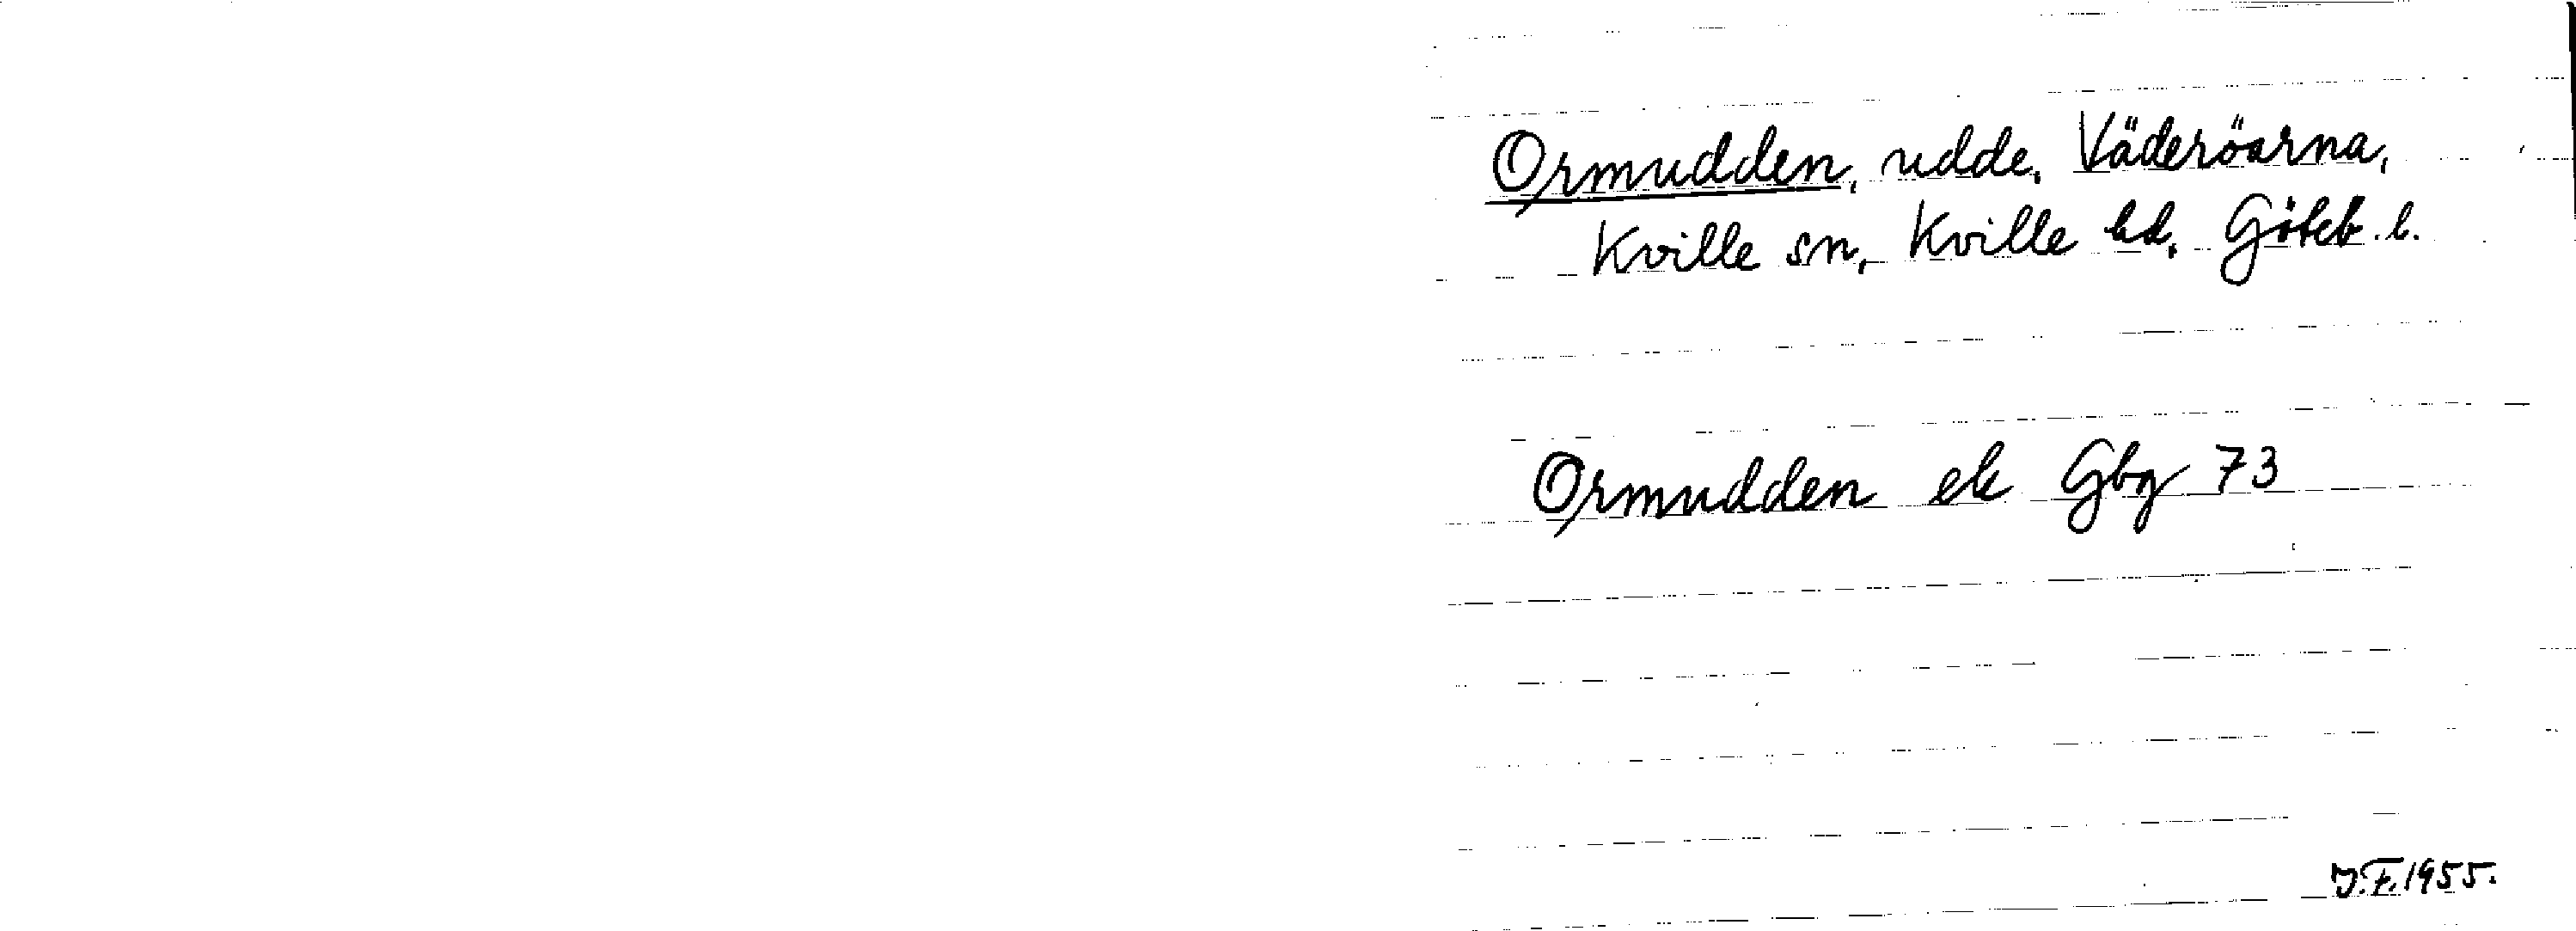 Ormudden, udde, Väderöarna,
Kville sn, Kville hd, Göteb. l.
Ormudden ek Gbg 73
J.F. 1955.